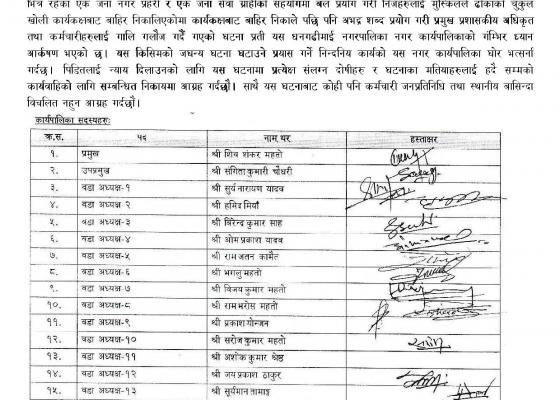 भित्र रहेका एक जना नगर प्रहरी र एक जना सेवा ग्राहीको सहयोगमा बल प्रयोग गरी निजहरुलाई मुस्किलले ढोकाको चुकुल
खोली कार्यकक्षबाट बाहिर निकालिएकोमा कार्यकक्षबाट बाहिर निकाले पछि पनि अभद्र शब्द प्रयोग गरी प्रमुख प्रशासकीय अधिकृत
तथा कर्मचारीहरुलाई गालि गलौज गर्दै गएको घटना प्रती यस धनगढीमाई नगरपालिका नगर कार्यपालिकाको गंम्भिर ध्यान
आकर्षण भएको छ। यस किसिमको जघन्य घटना घटाउने प्रयास गर्ने निन्दनिय कार्यको यस नगर कार्यपालिका घोर भर्त्सना
गर्दछ। पिडितलाई न्याय दिलाउनको लागि यस घटनामा प्रत्येक्ष संलग्न दोषीहरु र घटनाका मतियाहरुलाई हदै सम्मको
कार्यवाहिको लागि सम्बन्धित निकायमा आग्रह गर्दछौं। साथै यस घटनाबाट कोही पनि कर्मचारी जनप्रतिनिधि तथा स्थानीय बासिन्दा
विचलित नहुन आग्रह गर्दछौं।
कार्यपालिका सदस्यहरुः
क्र.स. पद नाम थर हस्ताक्षर
१. प्रमुख श्री शिव शंकर महतो
२. उपप्रमुख श्री संगिता कुमारी चौधरी
३. वडा अध्यक्ष-१ श्री सुर्य नारायण यादव
४. वडा अध्यक्ष-२ श्री हमिद मियाँ
५. वडा अध्यक्ष-३ श्री बिरेन्द्र कुमार साह
६. वडा अध्यक्ष-४ श्री ओम प्रकाश यादव
७. वडा अध्यक्ष-५ श्री राम जतन कामैत
८. वडा अध्यक्ष-६ श्री भगलु महतो
९. वडा अध्यक्ष-७ श्री विजय कुमार महतो
१०. वडा अध्यक्ष-८ श्री राम भरोस महतो
११. वडा अध्यक्ष-९ श्री प्रकाश गोन्जन
१२. वडा अध्यक्ष-१० श्री सरोज कुमार महतो
१३. वडा अध्यक्ष-११ श्री अशोक कुमार श्रेष्ठ
१४. वडा अध्यक्ष-१२ श्री जय प्रकाश ठाकुर
१५. वडा अध्यक्ष-१३ श्री सुर्यमान तामाङ्ग